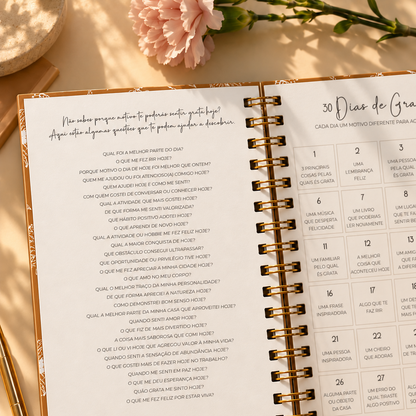 Não sabes porque motivo te poderás sentir grata hoje?
Aqui estão algumas questões que te podem ajudar a descobrir.
QUAL FOI A MELHOR PARTE DO DIA?
O QUE ME FEZ RIR HOJE?
PORQUE MOTIVO O DIA DE HOJE FOI MELHOR QUE ONTEM?
QUEM ME AJUDOU OU FOI ATENCIOSO(A) COMIGO HOJE?
QUEM AJUDEI HOJE E COMO ME SENTI?
COM QUEM GOSTEI DE CONVERSAR OU CONHECER HOJE?
QUAL A ATIVIDADE QUE MAIS GOSTEI HOJE?
DE QUE FORMA ME SENTI VALORIZADA?
QUE HÁBITO POSITIVO ADOTEI HOJE?
O QUE APRENDI DE NOVO HOJE?
QUAL A ATIVIDADE OU HOBBIE ME FEZ FELIZ HOJE?
QUAL A MAIOR CONQUISTA DE HOJE?
QUE OBSTÁCULO CONSEGUI ULTRAPASSAR?
QUE OPORTUNIDADE OU PRIVILÉGIO TIVE HOJE?
O QUE ME FEZ APRECIAR A MINHA CIDADE HOJE?
O QUE AMO NO MEU CORPO?
QUAL O MELHOR TRAÇO DA MINHA PERSONALIDADE?
DE QUE FORMA APRECIEI A NATUREZA HOJE?
COMO DEMONSTREI BOM SENSO HOJE?
QUAL A MELHOR PARTE DA MINHA CASA QUE APROVEITEI HOJE?
QUANDO SENTI AMOR HOJE?
O QUE FIZ DE MAIS DIVERTIDO HOJE?
A COISA MAIS SABOROSA QUE COMI HOJE?
O QUE LI OU VI HOJE QUE AGREGOU VALOR À MINHA VIDA?
QUANDO SENTI A SENSAÇÃO DE ABUNDÂNCIA HOJE?
O QUE GOSTEI MAIS DE FAZER HOJE NO TRABALHO?
QUANDO ME SENTI EM PAZ HOJE?
O QUE ME DEU ESPERANÇA HOJE?
QUÃO GRATA ME SINTO HOJE?
O QUE ME FEZ FELIZ POR ESTAR VIVA?
30 Dias de Gra
CADA DIA UM MOTIVO DIFERENTE PARA AG
1
3 PRINCIPAIS
COISAS PELAS
QUAIS ÉS GRATA
2
UMA
LEMBRANÇA
FELIZ
3
UMA PESSOA
PELA QUAL
ÉS GRATA
6
UMA MÚSICA
QUE DESPERTA
FELICIDADE
7
UM LIVRO
QUE PODERIAS
LER NOVAMENTE
8
UM LUGAR
QUE TE FAZ
SENTIR B
11
UM FAMILIAR
PELO QUAL
ÉS GRATA
12
A MELHOR
COISA QUE
ACONTECEU HOJE
13
UM AM
16
UMA FRASE
INSPIRADORA
17
ALGO QUE TE
FAZ RIR
21
UMA PESSOA
INSPIRADORA
22
UM CHEIRO
QUE ADORAS
26
ALGUMA PARTE
OU OBJETO
DA CASA
27
UM ERRO DO
QUAL TIRASTE
ALGO POSITIVO